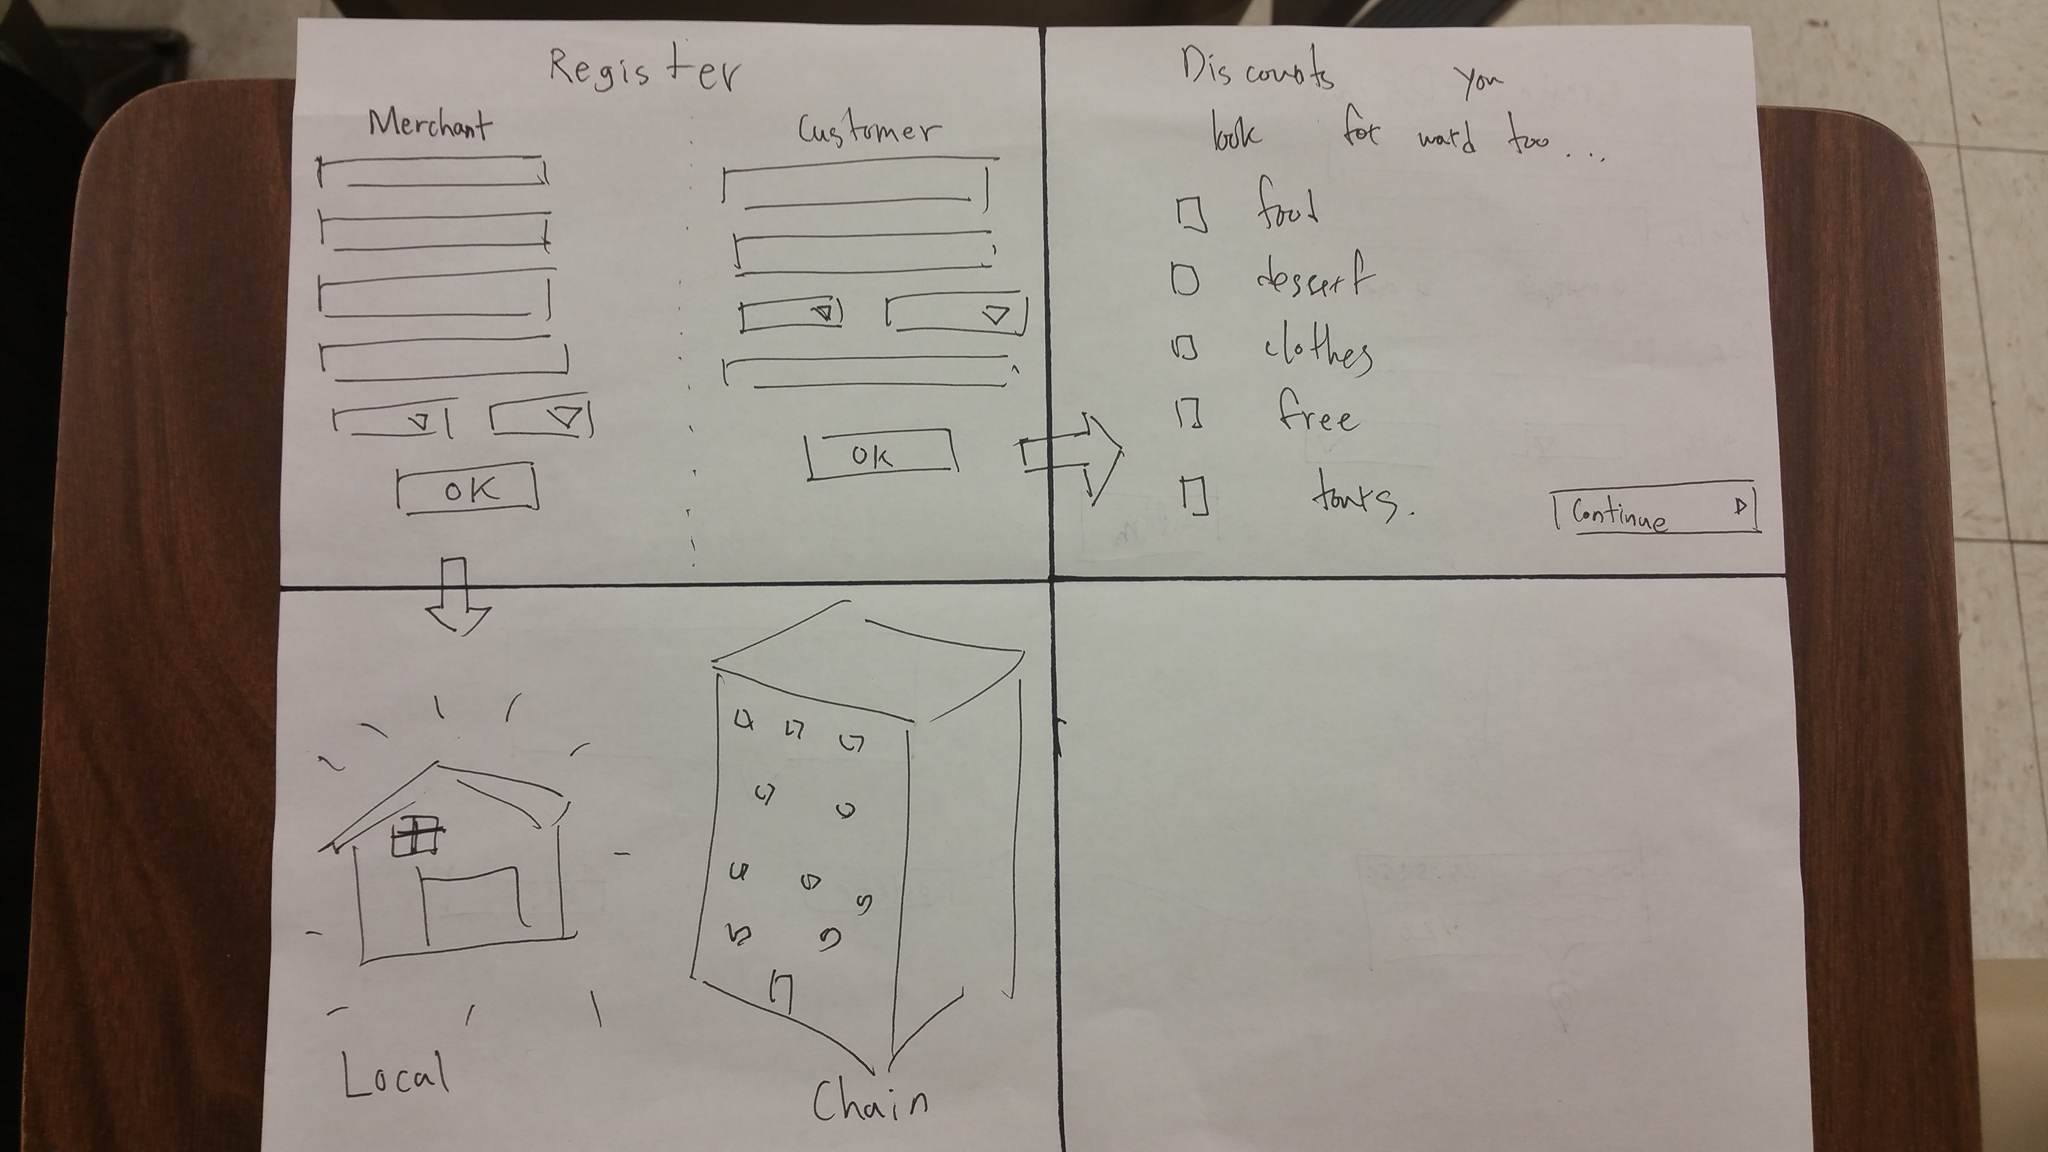 Register
Merchant
Customer
OK
OK
Discounts you
look for ward too...
food
dessert
clothes
free
tours.
Continue
Local
Chain